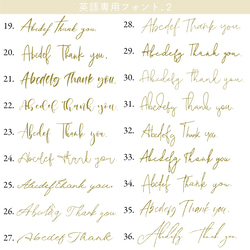 英語専用フォント.2
19. Abcdef Thank you.
20. Abcdef Thank you,
21. Abcdefg Thank you
22. Abcdef Thank you,
23. Abcdef Thank you.
24. Abcdef Thank you
25. Abcdef Thank you,
26. Abcdefg Thank you
27. Abcdef Thank
28. Abcdef Thank you
29. Abcdefg Thank you.
30. Abcdefg Thank you
31. Abcdefg Thank you
32. Abcdef Thank you
33. Abcdefg Thank you
34. Abcdef Thank you
35. Abcdefg Thank you.
36. Abcdef Thank you